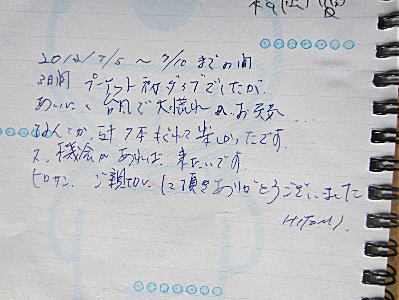 2012/7/5 ～ 7/10 までの間
3日間 プーケット初ダイブでしたが、
あいにく 台風で 大荒れの お天気 ...
なんとか、計 7本 もぐれて 楽しかったです
又、機会が あれば、来たいです。
ヒロサン、ご親切に して頂き ありがとうございました
HITOMI.